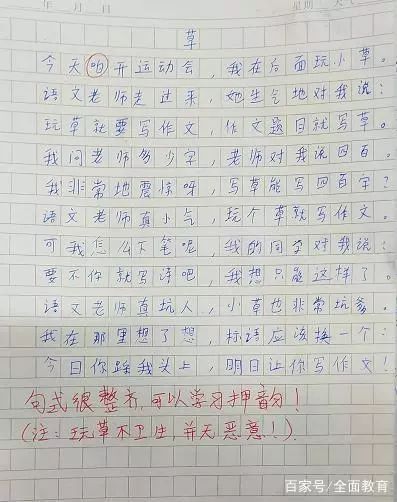 年 月 日 星期 天气
草
今天咱开运动会，我在后面玩小草。
语文老师走过来，她生气地对我说：
玩草就要写作文，作文题目就写草。
我问老师多少字，老师对我说四百。
我非常地震惊呀，写草能写四百字？
语文老师真小气，玩个草就写作文。
可我怎么下笔呢，我的同学对我说：
要不你就写诗吧，我想只能这样了。
语文老师真坑人，小草也非常坑爹。
我在那里想了想，标语应该换一个：
今日你踩我头上，明日让你写作文！
句式很整齐，可以学习押韵！
（注：玩草不卫生，并无恶意！）
百家号/全面教育